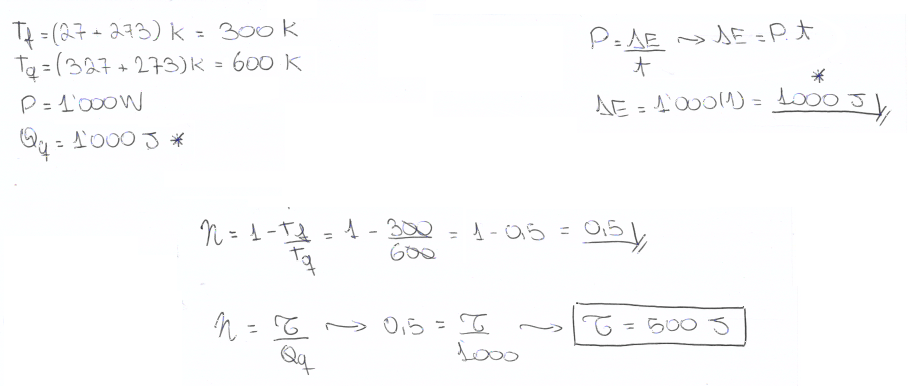 Tf = (27 + 273) K = 300 K
Tq = (327 + 273) K = 600 K
P = 1'000 W
Qq = 1'000 J *
P = ΔE/t ⇝ ΔE = P. t
ΔE = 1'000(1) = 1000 J *
η = 1 - Tf/Tq = 1 - 300/600 = 1 - 0,5 = 0,5
η = τ/Qq ⇝ 0,5 = τ/1000 ⇝ τ = 500 J